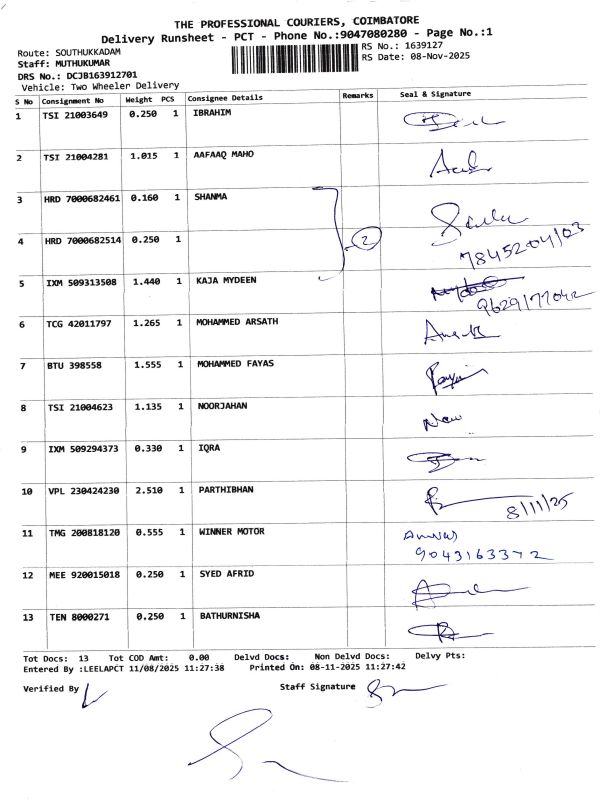 THE PROFESSIONAL COURIERS, COIMBATORE
Delivery Runsheet - PCT - Phone No.:9047080280 - Page No.:1
Route: SOUTHUKKADAM RS No.: 1639127
Staff: MUTHUKUMAR RS Date: 08-Nov-2025
DRS No.: DCJB163912701
Vehicle: Two Wheeler Delivery
S No Consignment No Weight PCS Consignee Details Remarks Seal & Signature
1 TSI 21003649 0.250 1 IBRAHIM
2 TSI 21004281 1.015 1 AAFAAQ MAHO
3 HRD 7000682461 0.160 1 SHANMA
4 HRD 7000682514 0.250 1 2 7845204103
5 IXM 509313508 1.440 1 KAJA MYDEEN 9629177042
6 TCG 42011797 1.265 1 MOHAMMED ARSATH
7 BTU 398558 1.555 1 MOHAMMED FAYAS
8 TSI 21004623 1.135 1 NOORJAHAN
9 IXM 509294373 0.330 1 IQRA
10 VPL 230424230 2.510 1 PARTHIBHAN 8/11/25
11 TMG 200818120 0.555 1 WINNER MOTOR
9043163372
12 MEE 920015018 0.250 1 SYED AFRID
13 TEN 8000271 0.250 1 BATHURNISHA
Tot Docs: 13 Tot COD Amt: 0.00 Delvd Docs: Non Delvd Docs: Delvy Pts:
Entered By :LEELAPCT 11/08/2025 11:27:38 Printed On: 08-11-2025 11:27:42
Verified By Staff Signature